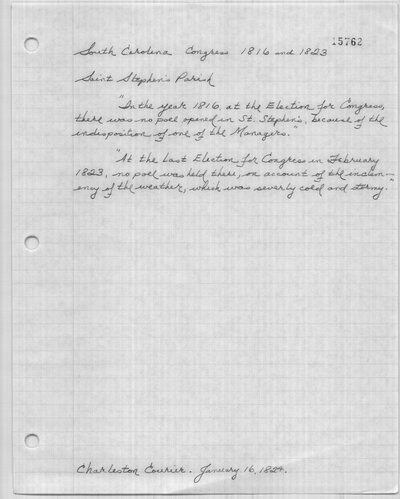 15762
South Carolina Congress 1816 and 1823
Saint Stephen's Parish
"In the year 1816, at the Election for Congress,
there was no poll opened in St. Stephen's, because of the
indisposition of one of the Managers."
"At the last Election for Congress in February
1823, no poll was held there, on account of the inclem-
ency of the weather, which was severly cold and stormy."
Charleston Courier. January 16, 1824.